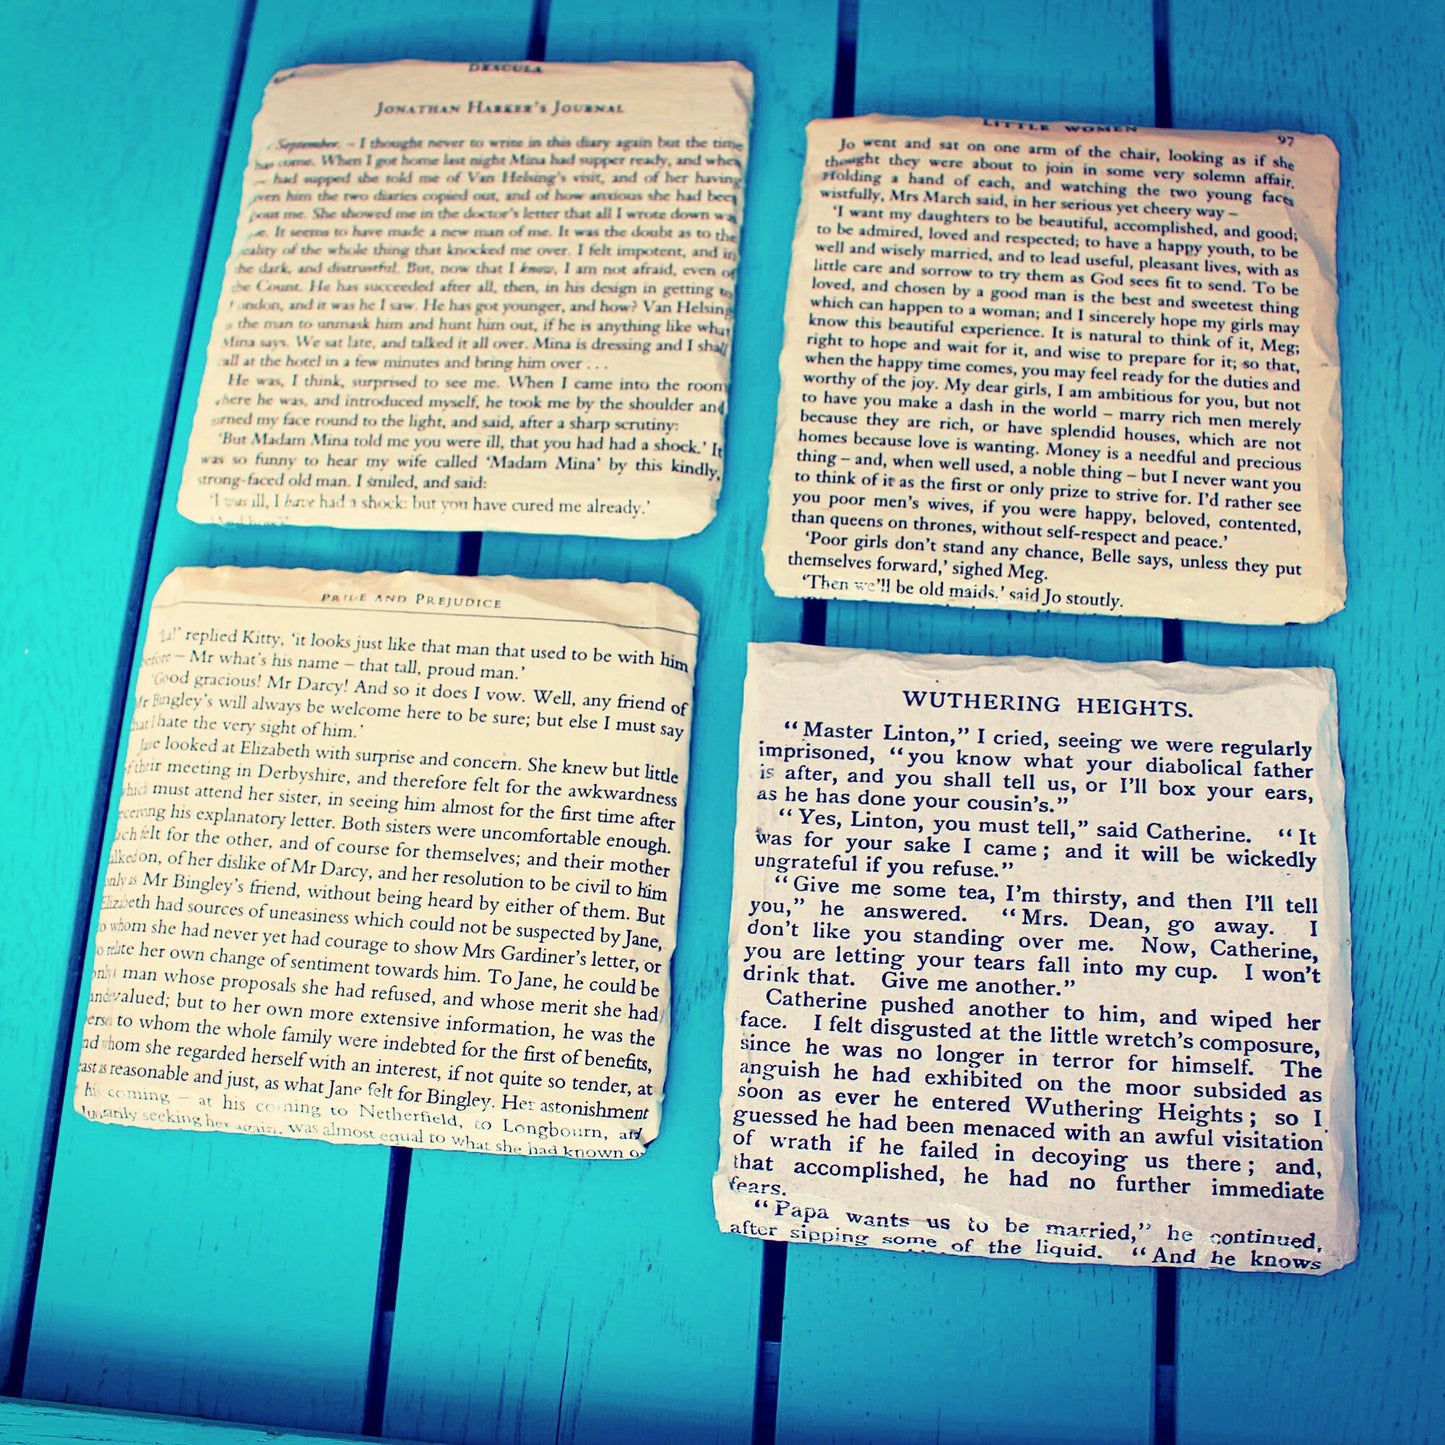 DRACULA
JONATHAN HARKER'S JOURNAL
September. – I thought never to write in this diary again but the time
has come. When I got home last night Mina had supper ready, and when
had supped she told me of Van Helsing's visit, and of her having
ven him the two diaries copied out, and of how anxious she had been
bout me. She showed me in the doctor's letter that all I wrote down wa
ue. It seems to have made a new man of me. It was the doubt as to the
eality of the whole thing that knocked me over. I felt impotent, and in
the dark, and distrustful. But, now that I know, I am not afraid, even of
the Count. He has succeeded after all, then, in his design in getting to
London, and it was he I saw. He has got younger, and how? Van Helsing
is the man to unmask him and hunt him out, if he is anything like what
Mina says. We sat late, and talked it all over. Mina is dressing and I shall
call at the hotel in a few minutes and bring him over . . .
He was, I think, surprised to see me. When I came into the room
where he was, and introduced myself, he took me by the shoulder and
urned my face round to the light, and said, after a sharp scrutiny:
'But Madam Mina told me you were ill, that you had had a shock.' It
was so funny to hear my wife called 'Madam Mina' by this kindly,
strong-faced old man. I smiled, and said:
'I was ill, I have had a shock: but you have cured me already.'
LITTLE WOMEN 97
Jo went and sat on one arm of the chair, looking as if she
thought they were about to join in some very solemn affair.
Holding a hand of each, and watching the two young faces
wistfully, Mrs March said, in her serious yet cheery way –
'I want my daughters to be beautiful, accomplished, and good;
to be admired, loved and respected; to have a happy youth, to be
well and wisely married, and to lead useful, pleasant lives, with as
little care and sorrow to try them as God sees fit to send. To be
loved, and chosen by a good man is the best and sweetest thing
which can happen to a woman; and I sincerely hope my girls may
know this beautiful experience. It is natural to think of it, Meg;
right to hope and wait for it, and wise to prepare for it; so that,
when the happy time comes, you may feel ready for the duties and
worthy of the joy. My dear girls, I am ambitious for you, but not
to have you make a dash in the world – marry rich men merely
because they are rich, or have splendid houses, which are not
homes because love is wanting. Money is a needful and precious
thing – and, when well used, a noble thing – but I never want you
to think of it as the first or only prize to strive for. I'd rather see
you poor men's wives, if you were happy, beloved, contented,
than queens on thrones, without self-respect and peace.'
'Poor girls don't stand any chance, Belle says, unless they put
themselves forward,' sighed Meg.
'Then we'll be old maids,' said Jo stoutly.
PRIDE AND PREJUDICE
'La!' replied Kitty, 'it looks just like that man that used to be with him
before – Mr what's his name – that tall, proud man.'
'Good gracious! Mr Darcy! And so it does I vow. Well, any friend of
Mr Bingley's will always be welcome here to be sure; but else I must say
that I hate the very sight of him.'
Jane looked at Elizabeth with surprise and concern. She knew but little
of their meeting in Derbyshire, and therefore felt for the awkwardness
which must attend her sister, in seeing him almost for the first time after
receiving his explanatory letter. Both sisters were uncomfortable enough.
Each felt for the other, and of course for themselves; and their mother
alked on, of her dislike of Mr Darcy, and her resolution to be civil to him
only as Mr Bingley's friend, without being heard by either of them. But
Elizabeth had sources of uneasiness which could not be suspected by Jane,
to whom she had never yet had courage to show Mrs Gardiner's letter, or
to relate her own change of sentiment towards him. To Jane, he could be
only a man whose proposals she had refused, and whose merit she had
undervalued; but to her own more extensive information, he was the
person to whom the whole family were indebted for the first of benefits,
and whom she regarded herself with an interest, if not quite so tender, at
east as reasonable and just, as what Jane felt for Bingley. Her astonishment
his coming – at his coming to Netherfield, to Longbourn, and
luntarily seeking her again, was almost equal to what she had known o
WUTHERING HEIGHTS.
"Master Linton," I cried, seeing we were regularly
imprisoned, "you know what your diabolical father
is after, and you shall tell us, or I'll box your ears,
as he has done your cousin's."
"Yes, Linton, you must tell," said Catherine. "It
was for your sake I came; and it will be wickedly
ungrateful if you refuse."
"Give me some tea, I'm thirsty, and then I'll tell
you," he answered. "Mrs. Dean, go away. I
don't like you standing over me. Now, Catherine,
you are letting your tears fall into my cup. I won't
drink that. Give me another."
Catherine pushed another to him, and wiped her
face. I felt disgusted at the little wretch's composure,
since he was no longer in terror for himself. The
anguish he had exhibited on the moor subsided as
soon as ever he entered Wuthering Heights; so I
guessed he had been menaced with an awful visitation
of wrath if he failed in decoying us there; and,
that accomplished, he had no further immediate
fears.
"Papa wants us to be married," he continued,
after sipping some of the liquid. "And he knows